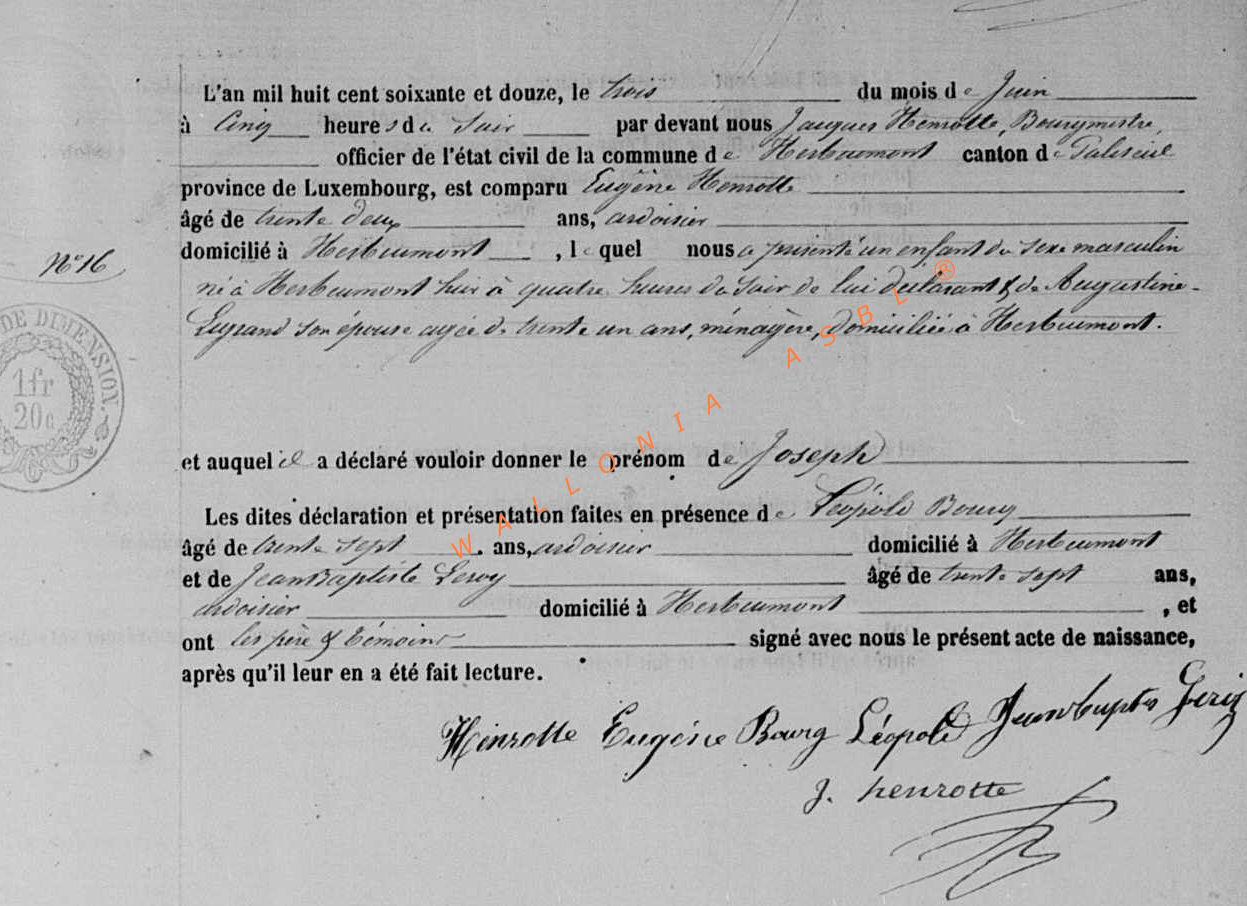 L'an mil huit cent soixante et douze, le trois du mois de Juin
à Cinq heures du Soir par devant nous Jacques Henrotte, Bourgmestre,
officier de l'état civil de la commune de Herbeumont canton de Paliseul
province de Luxembourg, est comparu Eugène Henrotte
âgé de trente deux ans, ardoisier
domicilié à Herbeumont, lequel nous a présenté un enfant du sexe masculin
N° 16
né à Herbeumont hier à quatre heures du Soir de lui déclarant & de Augustine
Legrand son épouse agée de trente un ans, ménagère, domiciliée à Herbeumont.
DE DIMENSION.
1fr
20c
et auquel il a déclaré vouloir donner le prénom de Joseph
Les dites déclaration et présentation faites en présence de Léopold Bourg
âgé de trente sept ans, ardoisier domicilié à Herbeumont
et de Jean Baptiste Leroy âgé de trente sept ans,
ardoisier domicilié à Herbeumont, et
ont les père & témoins signé avec nous le présent acte de naissance,
après qu'il leur en a été fait lecture.
Henrotte Eugène Bourg Léopold Jean baptis
J. henrotte
WALLONIA ASBL ®